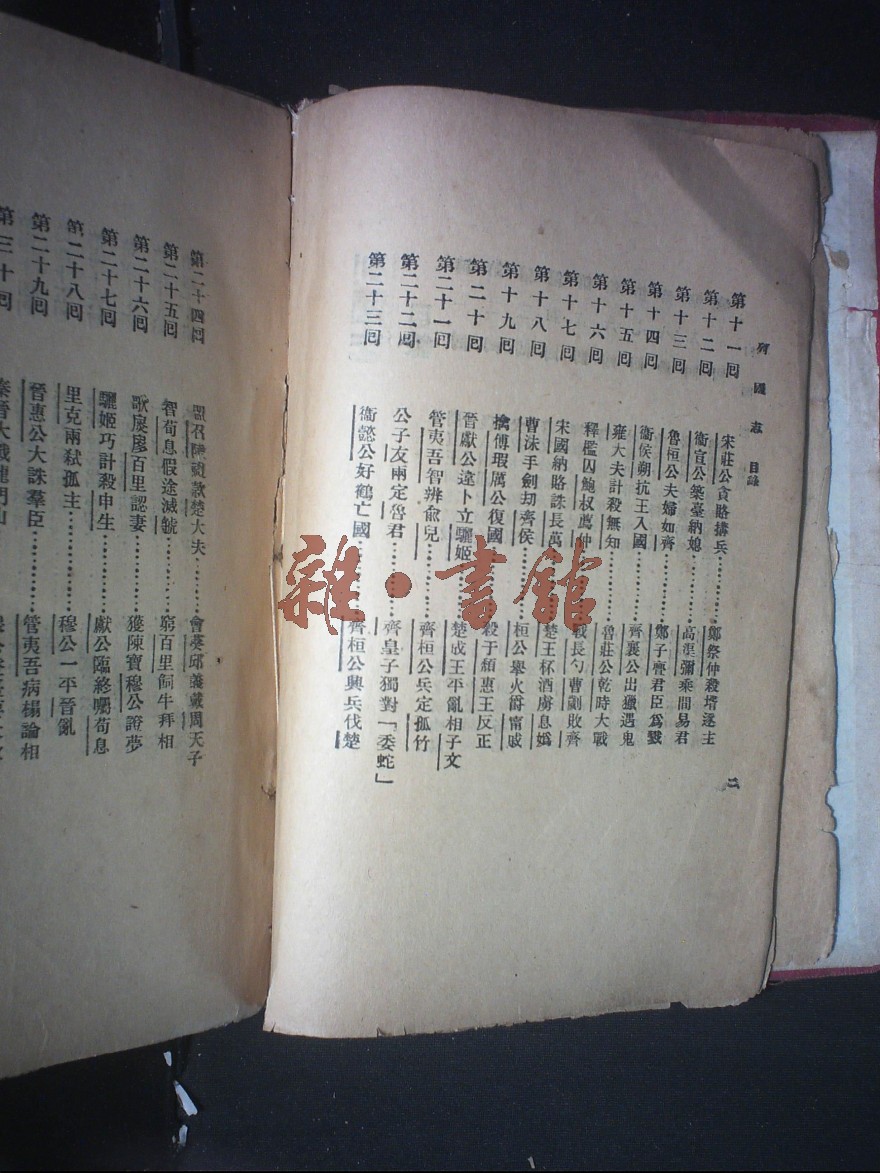 列國志 目錄
二
第十一回 宋莊公貪賂搆兵⋯⋯⋯⋯鄭祭仲殺壻逐主
第十二回 衞宣公築臺納媳⋯⋯⋯⋯高渠彌乘間易君
第十三回 魯桓公夫婦如齊⋯⋯⋯⋯鄭子亹君臣爲戮
第十四回 衞侯朔抗王入國⋯⋯⋯⋯齊襄公出獵遇鬼
第十五回 雍大夫計殺無知⋯⋯⋯⋯魯莊公乾時大戰
第十六回 釋檻囚鮑叔薦仲⋯⋯⋯⋯戰長勺曹劌敗齊
第十七回 宋國納賂誅長萬⋯⋯⋯⋯楚王杯酒虜息嬀
第十八回 曹沬手劍刧齊侯⋯⋯⋯⋯桓公舉火爵甯戚
第十九回 擒傅瑕厲公復國⋯⋯⋯⋯殺子頹惠王反正
第二十回 晉獻公違卜立驪姬⋯⋯⋯⋯楚成王平亂相子文
第二十一回 管夷吾智辨兪兒⋯⋯⋯⋯齊桓公兵定孤竹
第二十二回 公子友兩定魯君⋯⋯⋯⋯齊皇子獨對「委蛇」
第二十三回 衞懿公好鶴亡國⋯⋯⋯⋯齊桓公興兵伐楚
第二十四回 盟召陵禮款楚大夫⋯⋯⋯⋯會葵邱義戴周天子
第二十五回 智荀息假途滅虢⋯⋯⋯⋯窮百里飼牛拜相
第二十六回 歌扊扅百里認妻⋯⋯⋯⋯獲陳寶穆公證夢
第二十七回 驪姬巧計殺申生⋯⋯⋯⋯獻公臨終囑荀息
第二十八回 里克兩弒孤主⋯⋯⋯⋯穆公一平晉亂
第二十九回 晉惠公大誅羣臣⋯⋯⋯⋯管夷吾病榻論相
第三十回 秦晉大戰龍門山
雜·書館